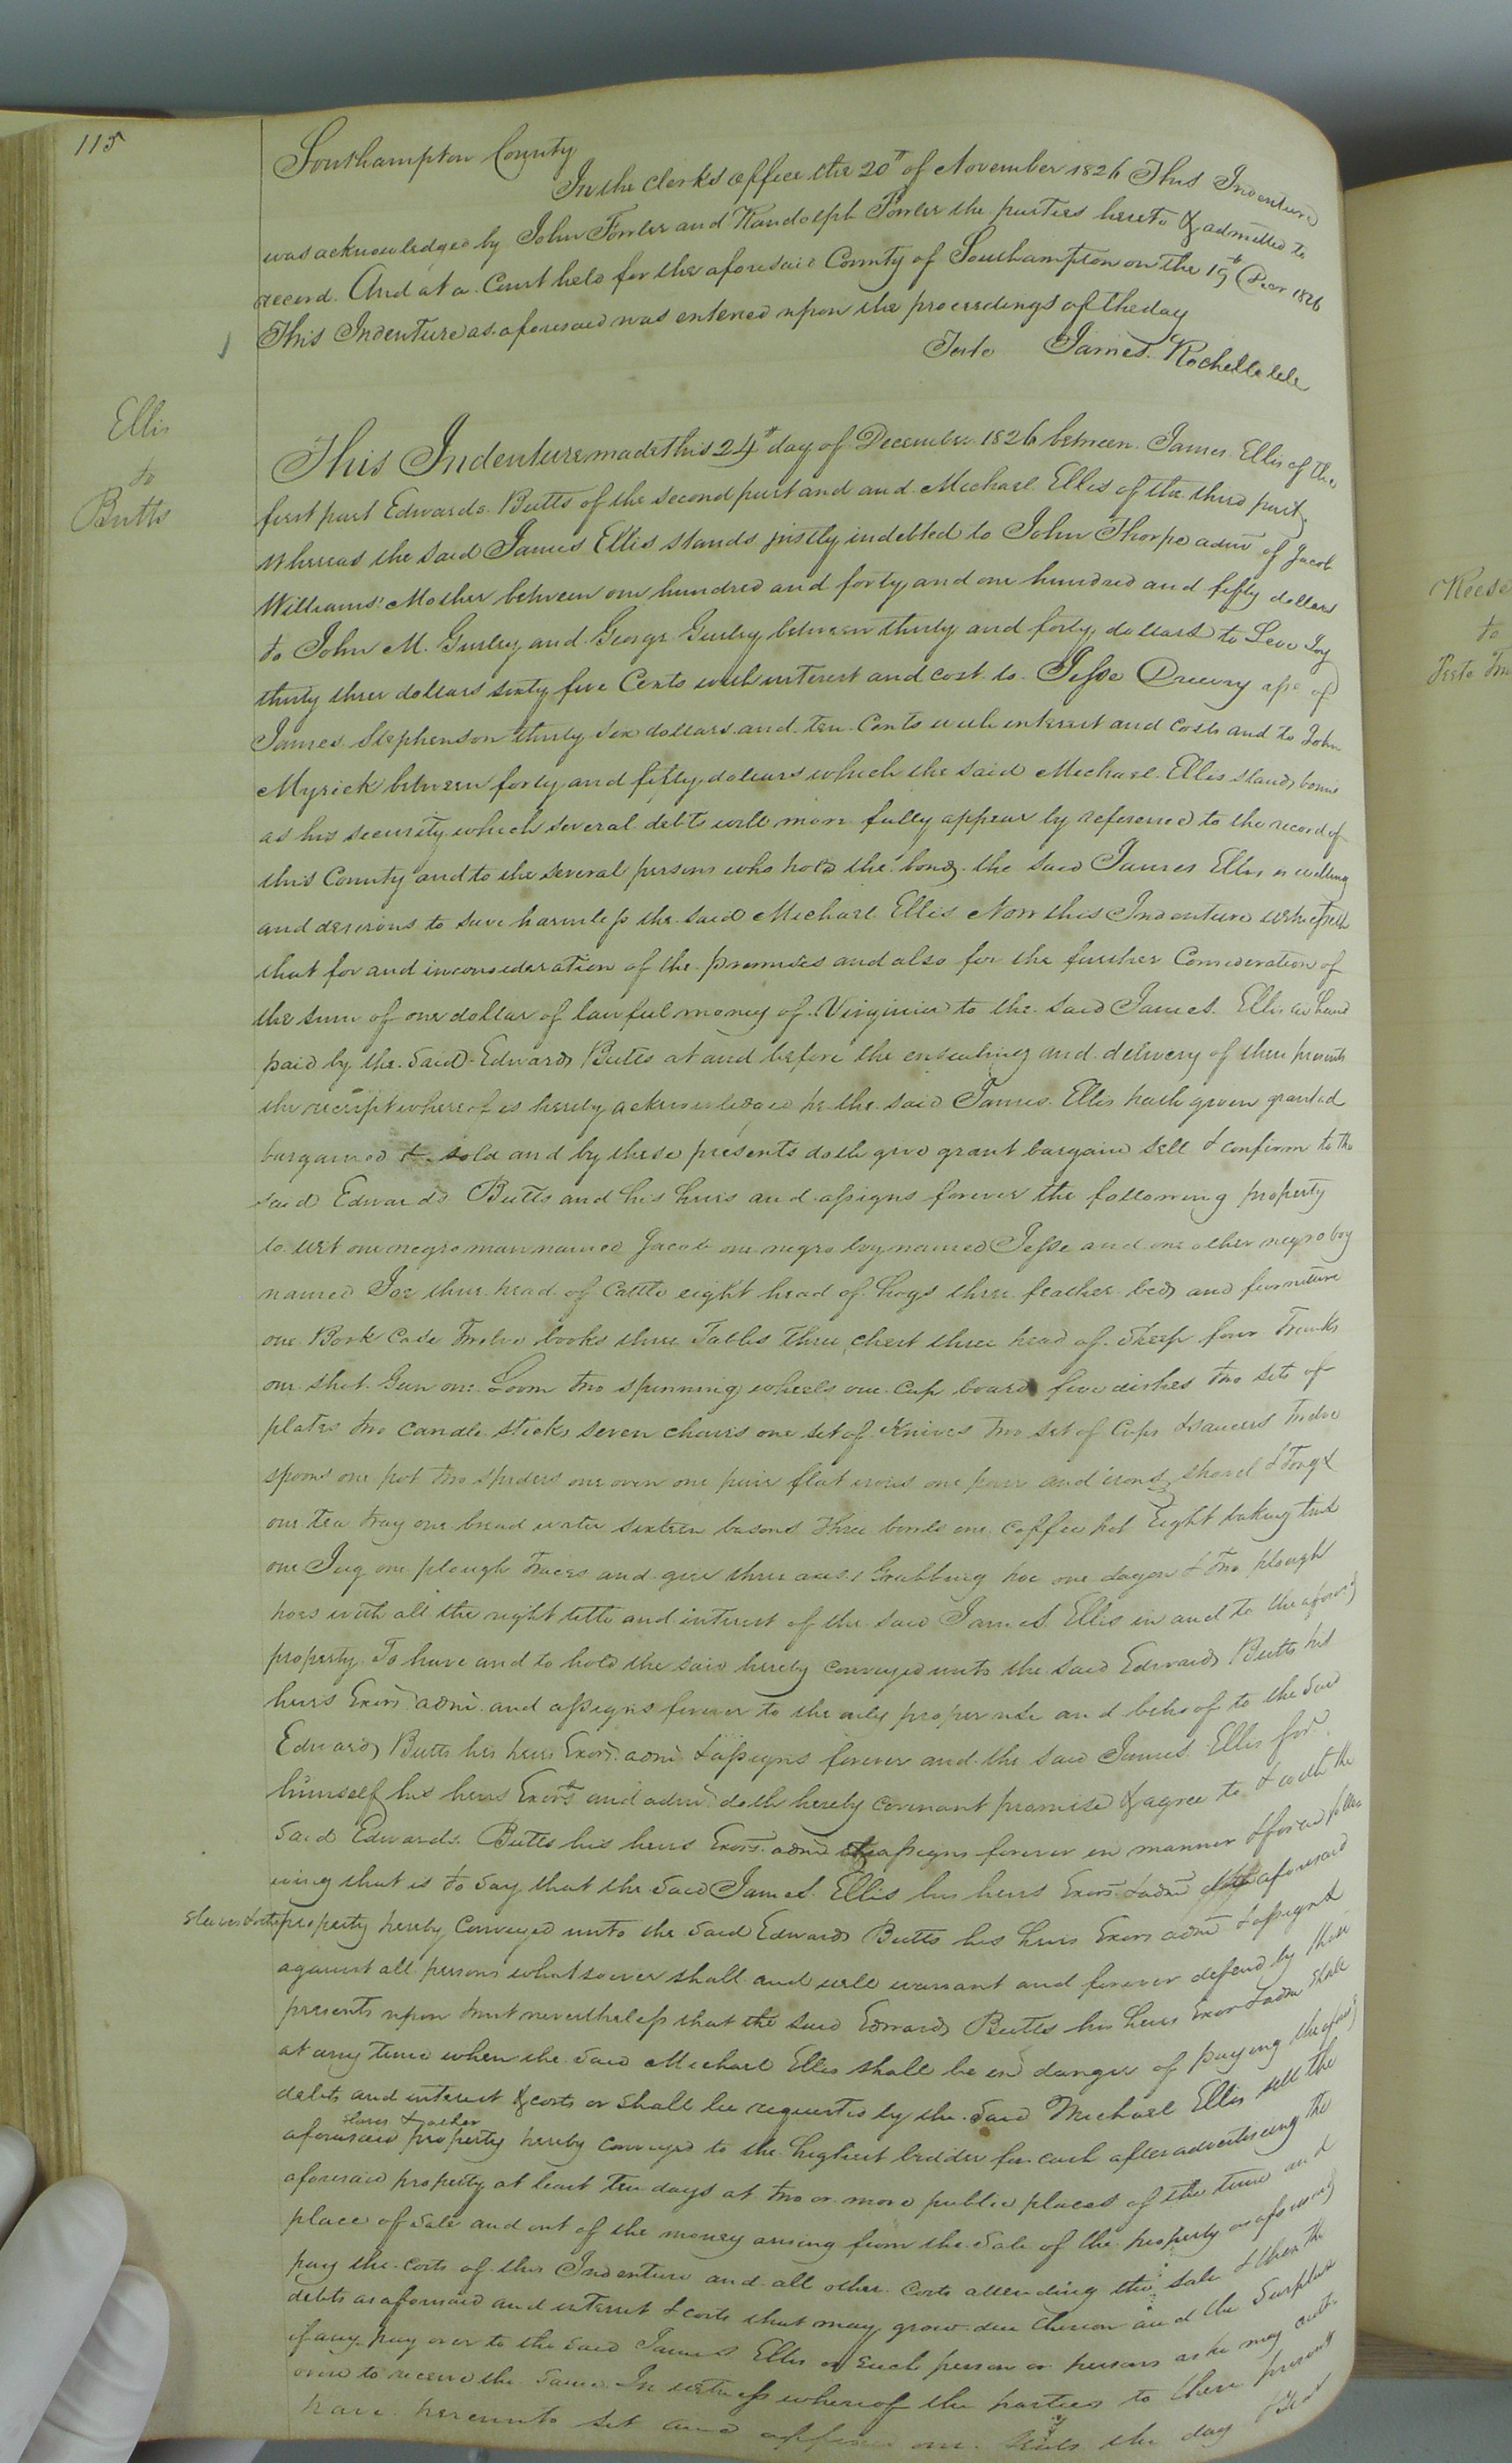 115
Southampton County
In the clerks office the 20th of November 1826 This Indenture
was acknowledged by John Fowler and Randolph Fowler the parties hereto & admitted to
record. And at a Court held for the aforesaid County of Southampton on the 19th Decr 1826
This Indenture as aforesaid was entered upon the proceedings of the day
Teste James Rochelle clk
Ellis
to
Butts
This Indenture made this 24th day of December 1826 between James Ellis of the
first part Edwards Butts of the second part and and Michael Ellis of the third part,
Whereas the said James Ellis stands justly indebted to John Thorpe admr of Jacob
Williams' Mother between one hundred and forty and one hundred and fifty dollars
to John M. Gurley and George Gurley between thirty and forty dollars to Levi Joy
thirty three dollars sixty five Cents with interest and cost to Jesse Drewry asse of
James Stephenson thirty six dollars and ten Cents with interest and costs and to John
Myrick between forty and fifty dollars which the said Michael Ellis stands
as his security which several debts will more fully appear by referened to the record of
this County and to the several persons who hold the bonds the said James Ellis is willing
and desirous to save harmless the said Michael Ellis Now this Indenture witnesseth
that for and in consideration of the premises and also for the further Consideration of
the sum of one dollar of lawful money of Virginia to the said James Ellis in hand
paid by the said Edwards Butts at and before the ensealing and delivery of these presents
the receipt whereof is hereby acknowledged he the said James Ellis hath given granted
bargained & sold and by these presents doth give grant bargain sell & confirm to the
said Edwards Butts and his heirs and assigns forever the following property
to wit one negro man named Jacob one negro boy named Jesse and one other negro boy
named Joe three head of Cattle eight head of hogs three feather beds and furniture
one Book Case Twelve books three Tables three chest three head of sheep four Trunks
one shot Gun one Loom two spinning wheels one Cup board five dishes two sets of
plates two candle sticks seven chairs one set of Knives two set of Cups & saucers Twelve
spoons one pot two spiders one oven one pair flat irons one pair and irons shovel & Tongs
one tea tray one bread waiter sixteen basons three bowls one coffee pot Eight baking tins
one Jug one plough traces and gear three axes 1 Grubbing hoe one dagon & two plough
hoes with all the right title and interest of the said James Ellis in and to the aforesd
property. To have and to hold the said hereby conveyed unto the said Edwards Butts his
heirs Exors admr and assigns forever to the only proper use and behoof to the said
Edwards Butts his heirs Exors admr & assigns forever and the said James Ellis for
himself his heirs Exors and admr doth hereby covenant promise & agree to & with the
said Edwards Butts his heirs Exors admr assigns forever in manner & form follo
wing that is to say that the said James Ellis his heirs Exors & admr aforesaid
slaves & other property hereby Conveyed unto the said Edwards Butts his heirs Exors admr & assigns
against all persons whatsoever shall and will warrant and forever defend by these
presents upon trust nevertheless that the said Edwards Butts his heirs Exor & admr shall
at any time when the said Michael Ellis shall be in danger of paying the aforesd
debts and interest & costs or shall be requested by the said Michael Ellis sell the
aforesaid slaves & other property hereby conveyed to the highest bidder for cash after advertiseing the
aforesaid property at least ten days at two or more public places of the time and
place of sale and out of the money arising from the sale of the property as aforesaid
pay the costs of this Indenture and all other costs attending the sale & then the
debts as aforesaid and interest & costs that may grow due thereon and the Surplus
if any pay over to the said James Ellis or such person or persons as he may auth
orise to receive the same. In witness whereof the parties to these presents
have hereunto set and seals the day
Reese
to